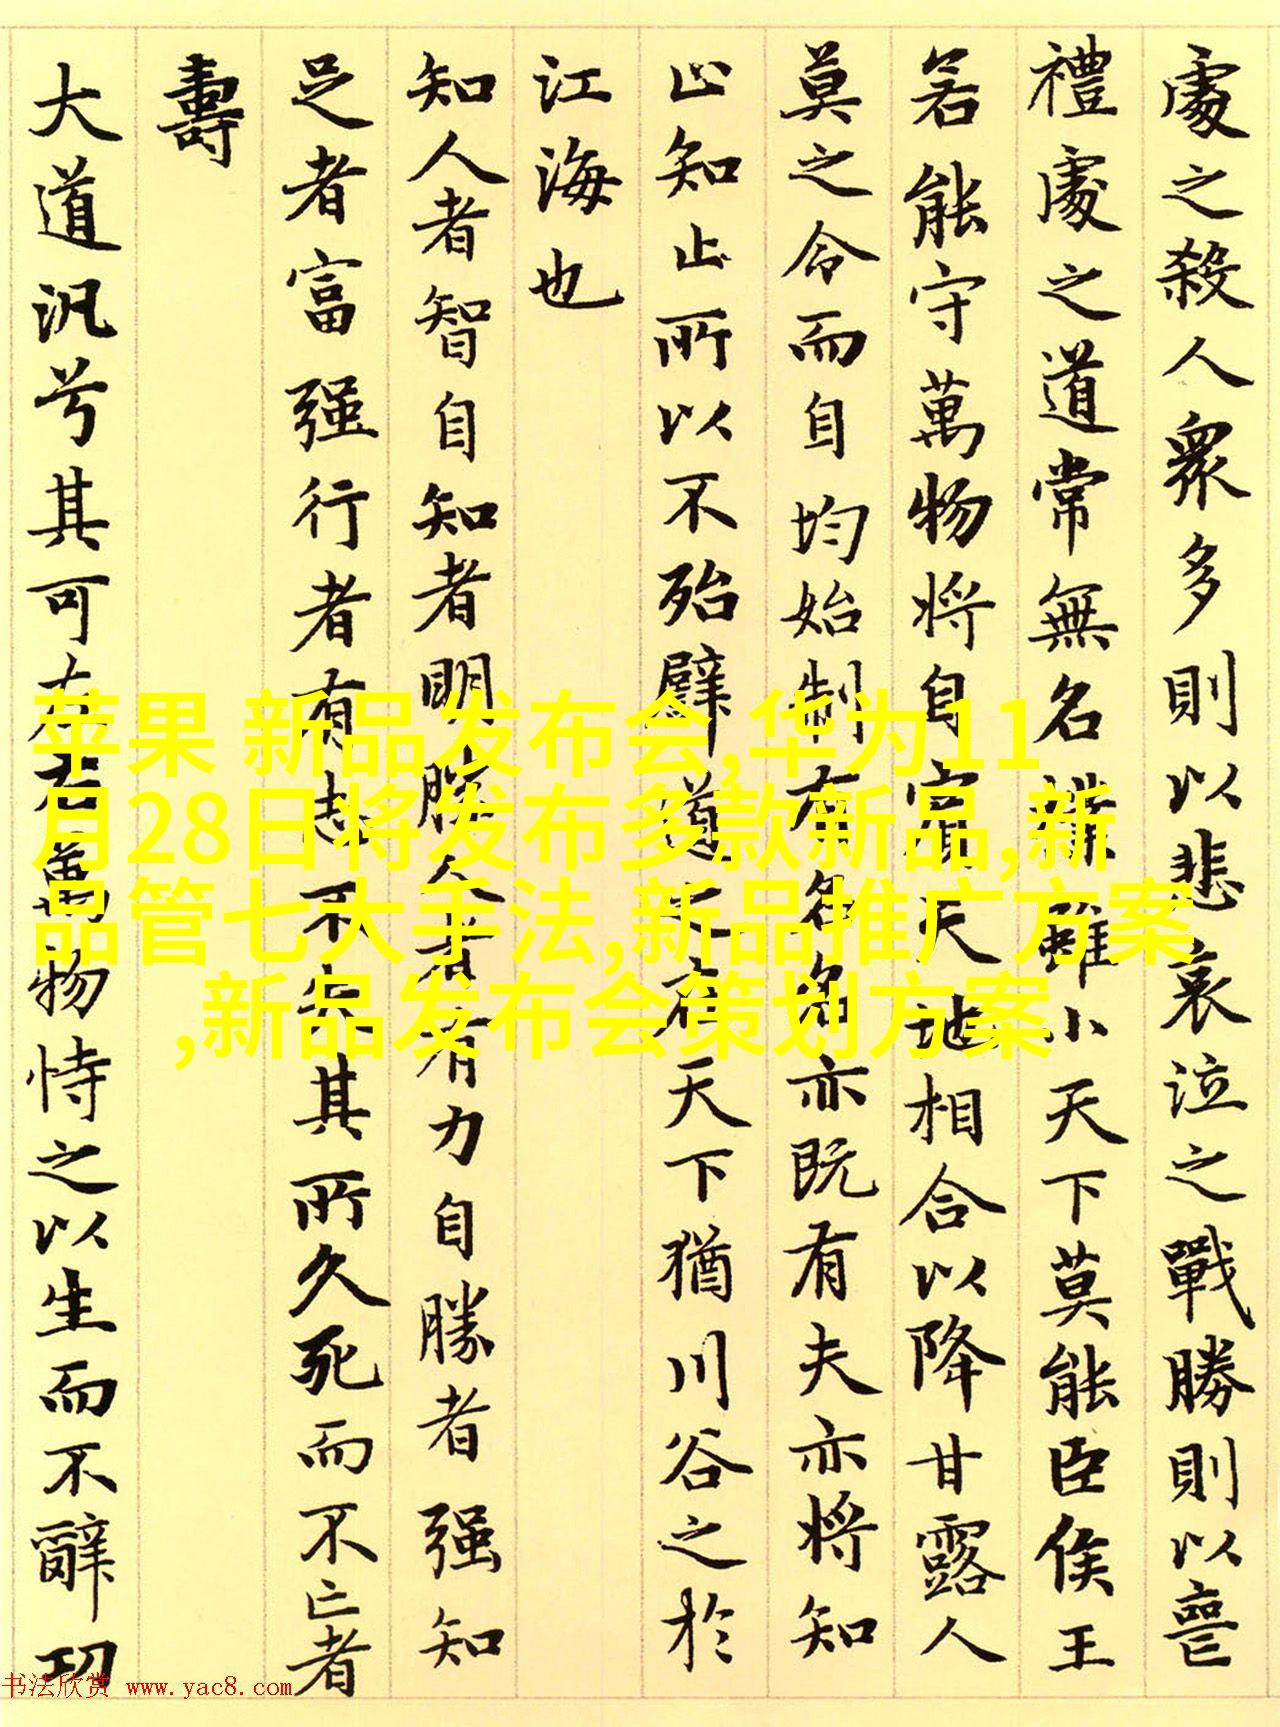 處之殺人衆多則以悲哀泣之戰勝則以喪
禮處之道常無名樸雖小天下莫能臣侯王
若能守萬物將自賓天地相合以降甘露人
莫之令而自均始制有名名亦既有夫亦將知
止知止所以不殆譬道之在天下猶川谷之於
江海也
知人者智自知者明勝人者有力自勝者强知
足者富强行者有志不失其所久死而不亡者
壽
大道汎兮其可左右萬物恃之以生而不辭功
苹果 新品发布会,华为11
月28日将发布多款新品,新
品管七大手法,新品推广方案
,新品发布会策划方案
书法欣赏 www.yac8.com